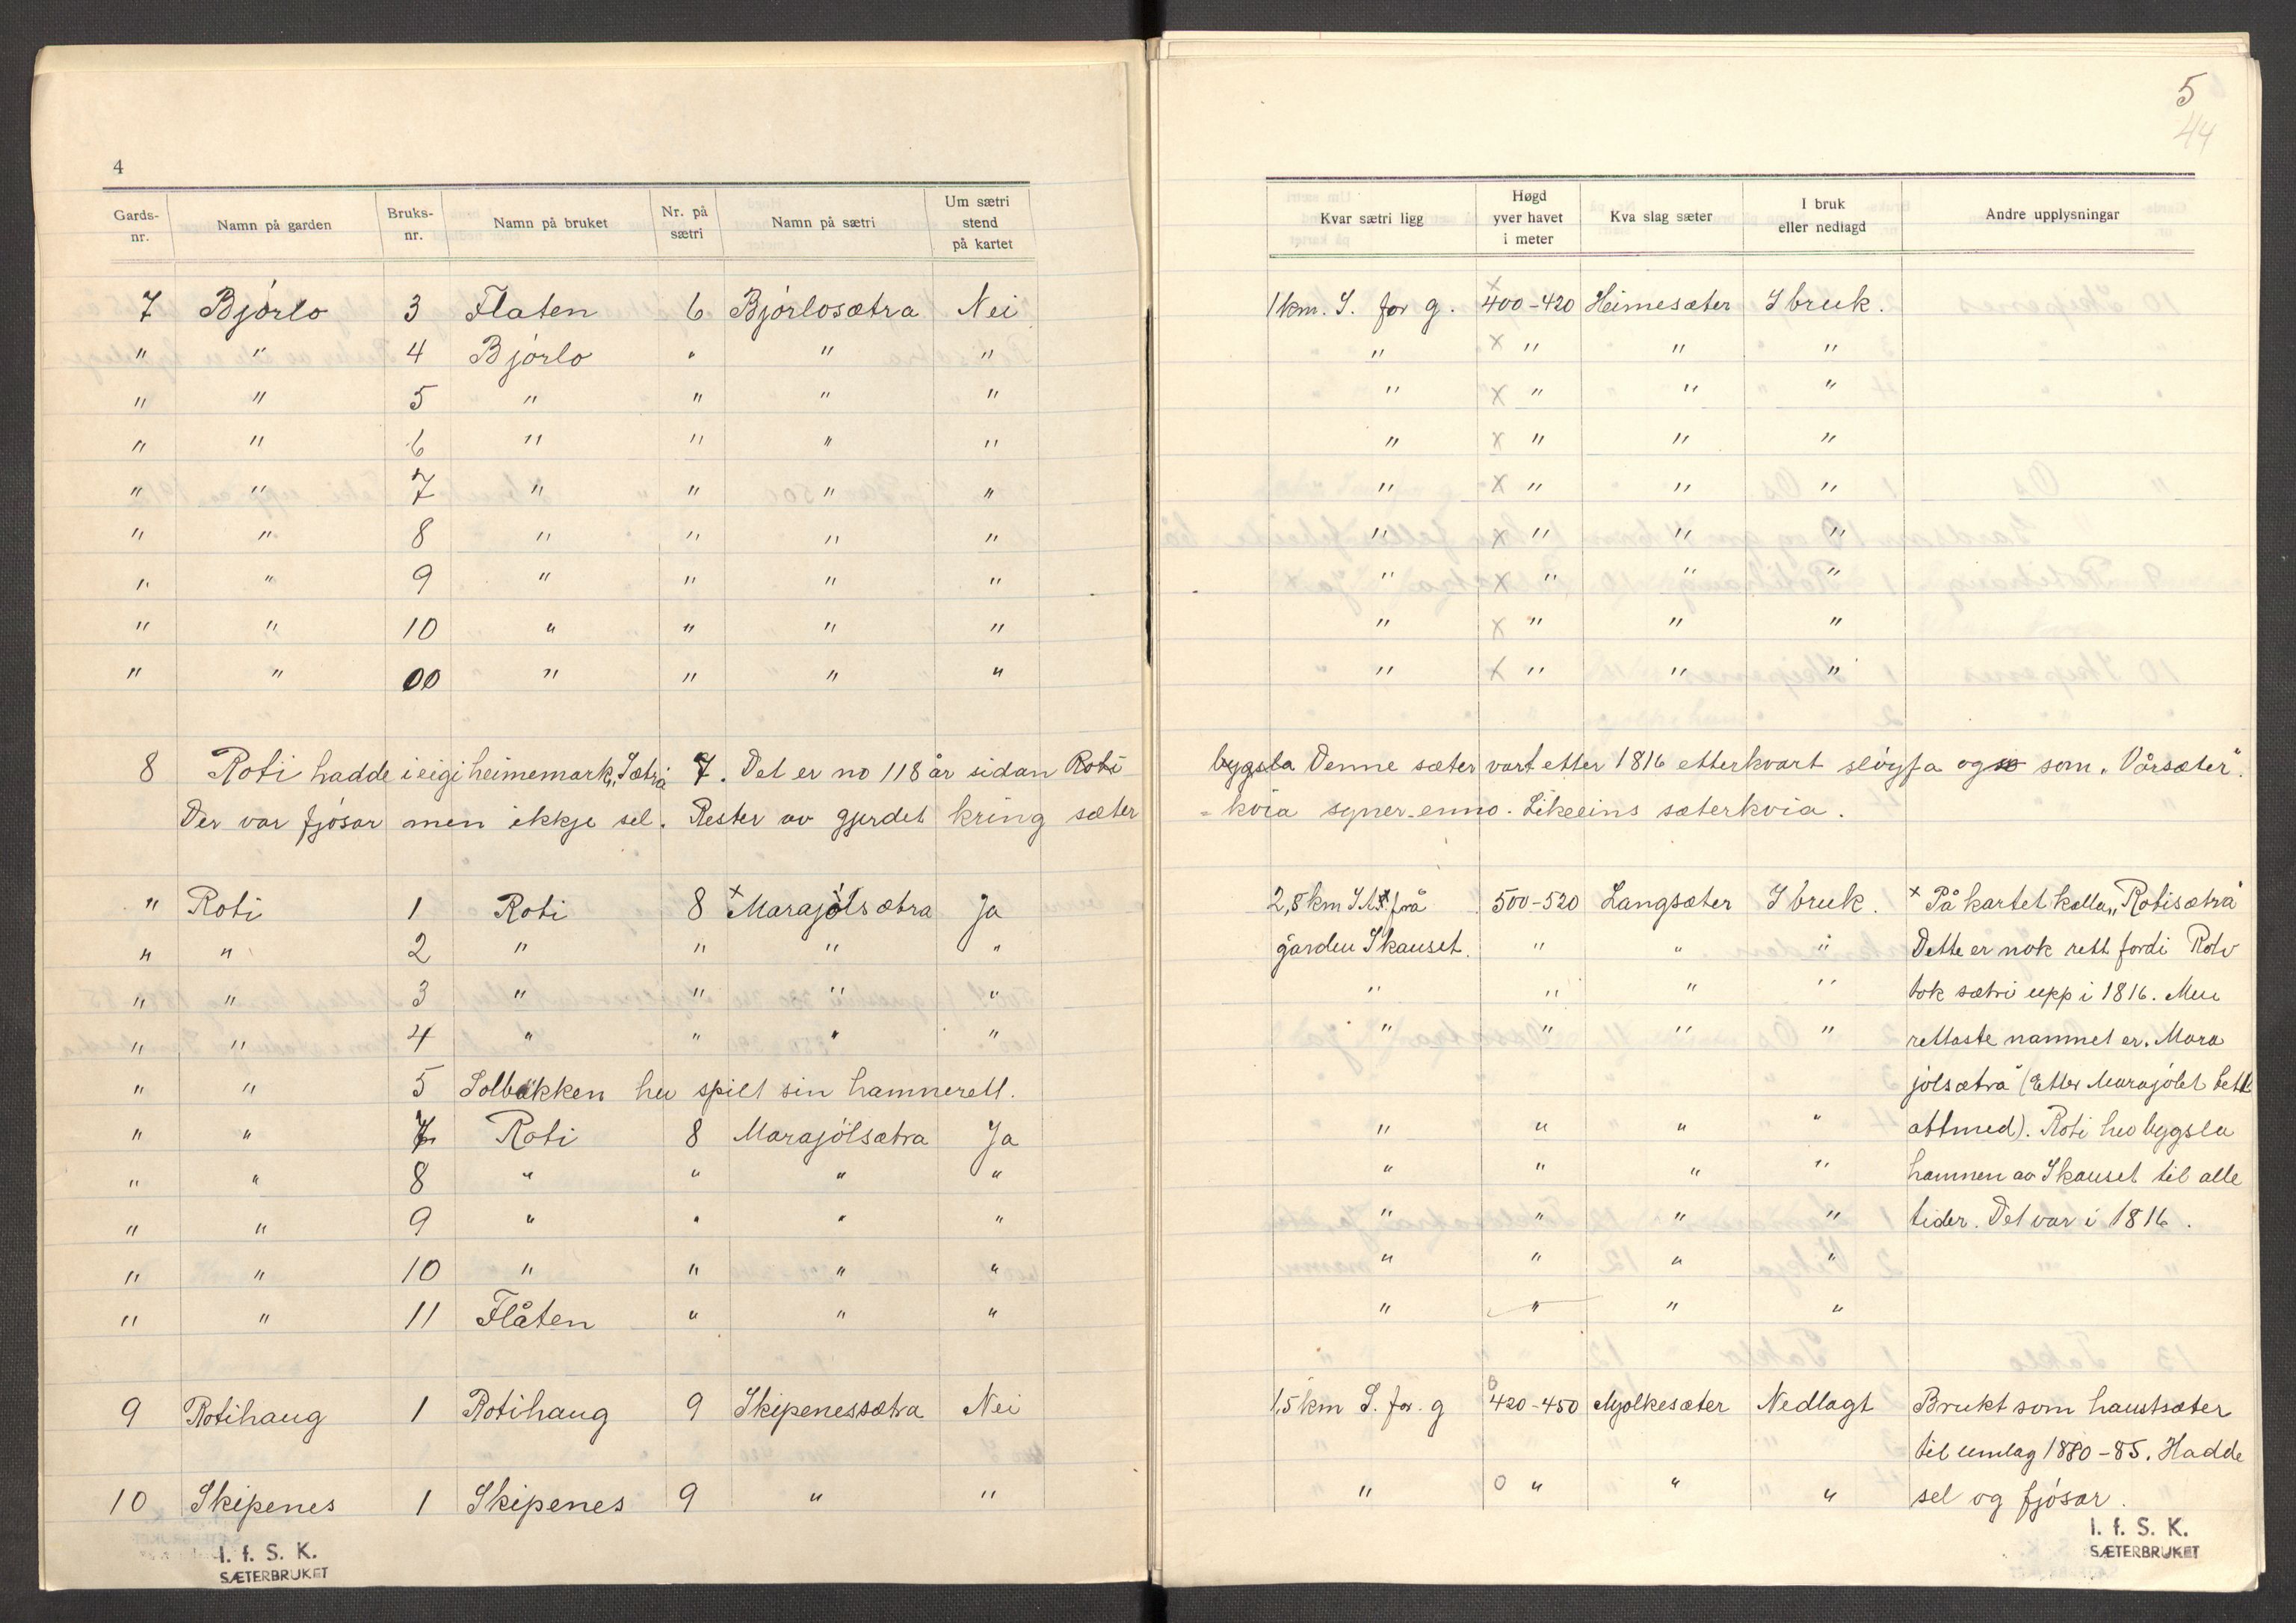 4
Gards-nr. Namn på garden Bruks-nr. Namn på bruket Nr. på sætri Namn på sætri Um sætri stend på kartet
7 Bjørlo 3 Flaten 6 Bjørlosætra Nei
" " 4 Bjørlo " " "
" " 5 " " " "
" " 6 " " " "
" " 7 " " " "
" " 8 " " " "
" " 9 " " " "
" " 10 " " " "
" " 00 " " " "
8 Roti hadde i eigi heimemark, "Sætri 7. Det er no 118 år sidan Roti
Der var fjøsar men ikkje sel. Rester av gjerdet kring sæter
" Roti 1 Roti 8 x Marajølsætra Ja
" " 2 " " " "
" " 3 " " " "
" " 4 " " " "
" " 5 Solbakken hev spilt sin hamnerett.
" " 7 Roti 8 Marajølsætra Ja
" " 8 " " " "
" " 9 " " " "
" " 10 " " " "
" " 11 Flåten " " "
9 Rotihaug 1 Rotihaug 9 Skipenessætra Nei
10 Skipenes 1 Skipenes 9 " "
I. f. S. K.
SÆTERBRUKET
5
44
Kvar sætri ligg Høgd yver havet i meter Kva slag sæter I bruk eller nedlagd Andre upplysningar
1 km. S. for g. x 400-420 Heimesæter I bruk.
" x " " "
" x " " "
" x " " "
" x " " "
" x " " "
" x " " "
" x " " "
" x " " "
bygsla Denne sæter vart etter 1816 etterkvart sløyfa og som "Vårsæter".
- kvia syner enno. Likeeins sæterkvia.
2,8 km frå 500-520 Langsæter I bruk. x På kartet kalla "Rotisætra"
garden Skauset. " " " Dette er nok rett fordi Roti
" " " " tok sætri upp i 1816. Men
" " " " rettaste namnet er "Mara
jølsætra" (Etter Marajølet tett
" " " " attmed). Roti hev bygsla
" " " " hamnen av Skauset til alle
" " " " tider. Det var i 1816.
" " " "
" " " "
1,5 km S. for g 0 420-450 Mjølkesæter Nedlagt Brukt som haustsæter
til umlag 1880-85. Hadde
" 0 " " " sel og fjøsar.
I. f. S. K.
SÆTERBRUKET